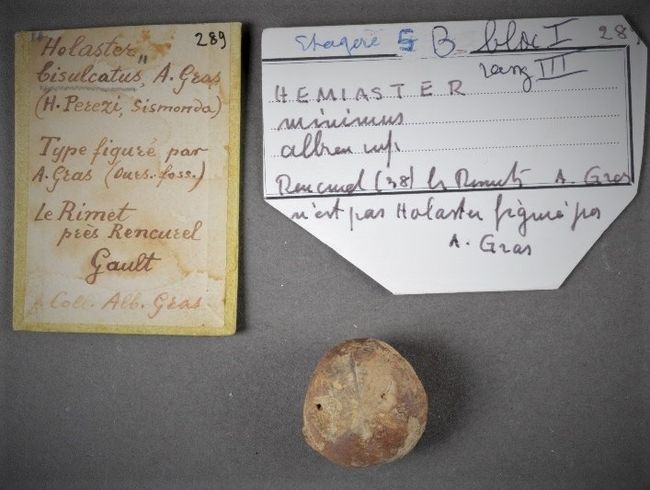 Holaster 289
bisulcatus, A. Gras
(H. Perezi, Sismonda)
Type figuré par
A. Gras (Ours. foss.)
Le Rimet
près Rencurel
Gault
Coll. Alb. Gras
Etagère 5 B bloc I 28
rang III
HEMIASTER
minimus
albien inf.
Rencurel (38) le Rimet A. Gras
n'est pas Holaster figuré par
A. Gras